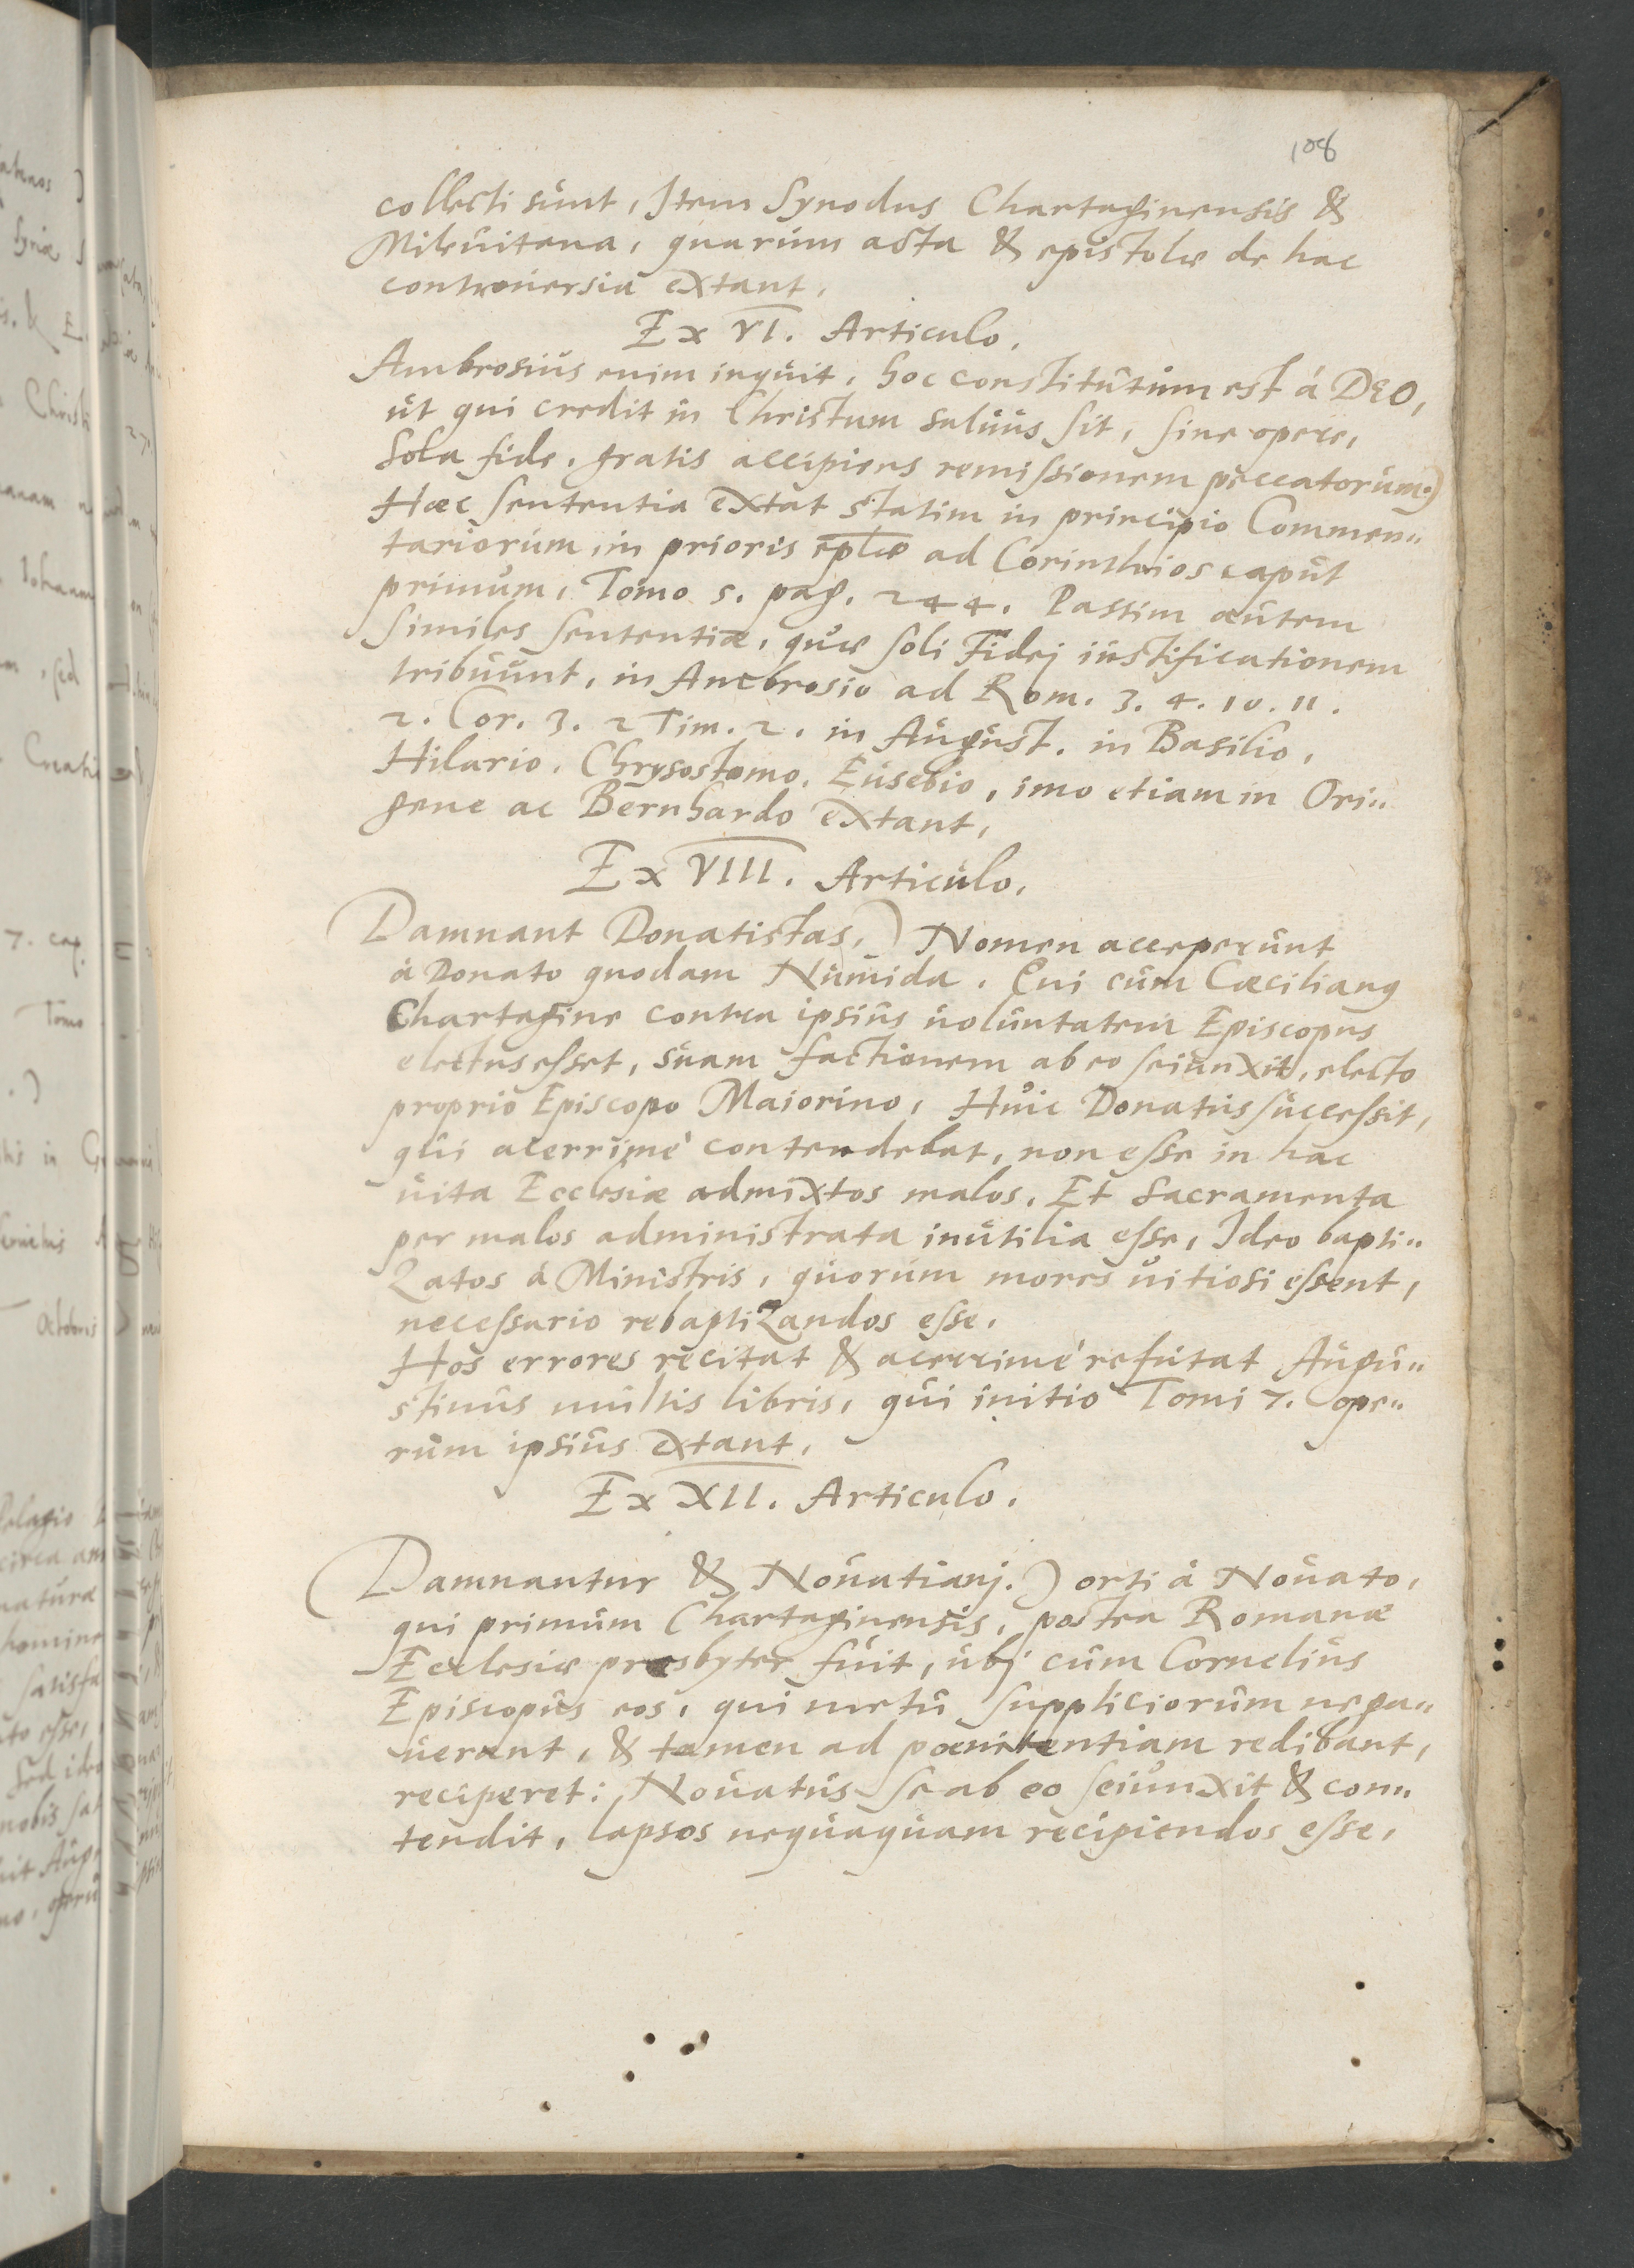 108
collecti sunt, Item Synodus Chartaginensis &
Mileuitana, quarum acta & epistolæ de hac
controuersia extant.
Ex VI. Articulo.
Ambrosius enim inquit, hoc constitutum est á DEO,
ut qui credit in Christum saluus sit, sine opere,
sola fide, gratis accipiens remissionem peccatorum.)
Hæc sententia extat statim in principio Commen„
tariorum in prioris eplæ ad Corinthios caput
primum, Tomo 5. pag. 244. Passim autem
similes sententiæ, quæ soli Fidej iustificationem
tribuunt, in Ambrosio ad Rom. 3. 4. 10. 11.
2. Cor. 3. 2 Tim. 2. in August. in Basilio,
Hilario, Chrysostomo, Eusebio, imo etiam in Ori„
gene ac Bernhardo extant,
Ex VIII. Articulo.
Damnant Donatistas,) Nomen acceperunt
á Donato quodam Numida. Qui cum Cæcilianus
Chartagine contra ipsius uoluntatem Episcopus
electus esset, suam factionem ab eo seiunxit, electo
proprio Episcopo Maiorino, Huic Donatus successit,
qui acerrimé contendebat, non esse in hac
uita Ecclesiæ admixtos malos, Et Sacramenta
per malos administrata inutilia esse, Ideo bapti„
zatos á Ministris, quorum mores uitiosi essent,
necessario rebaptizandos esse.
Hos errores recitat & acerrimé refutat Augu„
stinus multis libris, qui initio Tomi 7. ope„
rum ipsius extant.
Ex XII. Articulo.
(Damnantur & Nouatianj.) orti á Nouato,
qui primum Chartaginensis, postea Romanæ
Ecclesiæ presbyter fuit, ubj cum Cornelius
Episcopus eos, qui metu suppliciorum nega„
uerant, & tamen ad poenitentiam redibant,
reciperet: Nouatus se ab eo seiunxit & con„
tendit, lapsos nequaquam recipiendos esse,